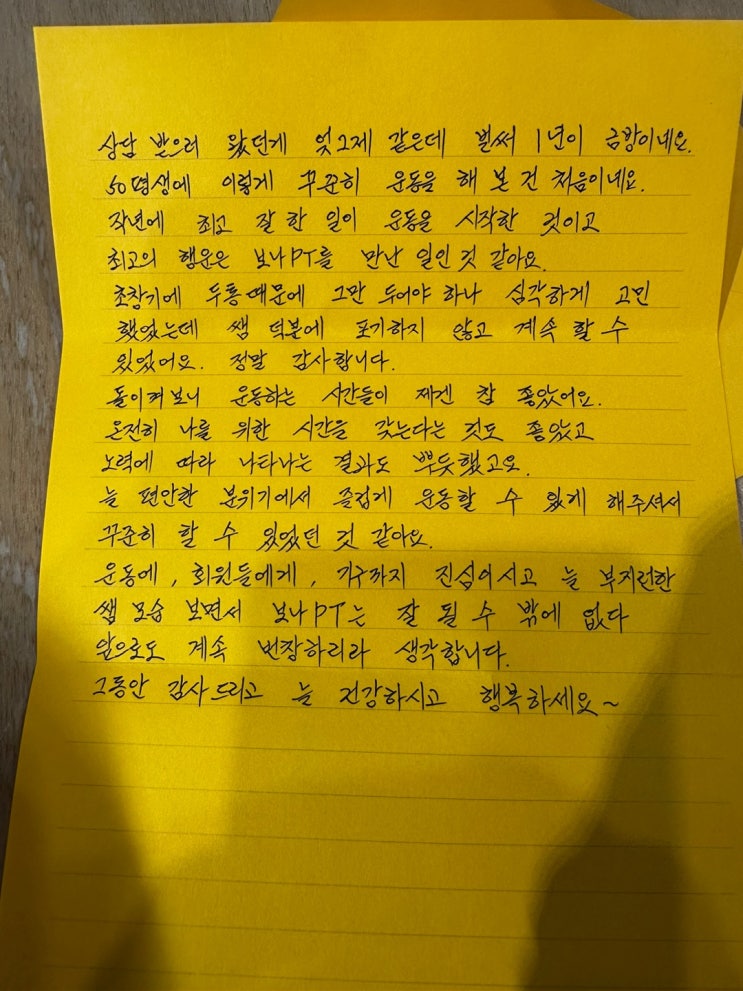 상담 받으러 왔던게 엊그제 같은데 벌써 1년이 금방이네요.
50평생에 이렇게 꾸준히 운동을 해 본 건 처음이네요.
작년에 최고 잘 한 일이 운동을 시작한 것이고
최고의 행운은 보나PT를 만난 일인 것 같아요.
초창기에 두통때문에 그만 두어야 하나 심각하게 고민
했었는데 쌤 덕분에 포기하지 않고 계속 할 수
있었어요. 정말 감사합니다.
돌이켜보니 운동하는 시간들이 제겐 참 좋았어요.
온전히 나를 위한 시간을 갖는다는 것도 좋았고
노력에 따라 나타나는 결과도 뿌듯했고요.
늘 편안한 분위기에서 즐겁게 운동할 수 있게 해주셔서
꾸준히 할 수 있었던 것 같아요.
운동에, 회원들에게, 기구까지 진심이시고 늘 부지런한
쌤 모습 보면서 보나PT는 잘 될 수 밖에 없다
앞으로도 계속 번창하리라 생각합니다.
그동안 감사드리고 늘 건강하시고 행복하세요~